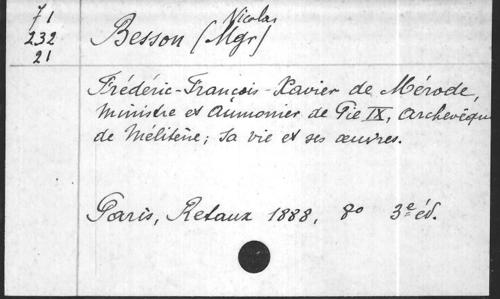 71
232
21
Nicolas
Besson (Mgr)
Frédéric-François-Xavier de Mérode,
ministre et aûmonier de Pie IX, archevêque
de Mélitène; sa vie et ses œuvres.
Paris, Retaux 1888, 8o 3e éd.